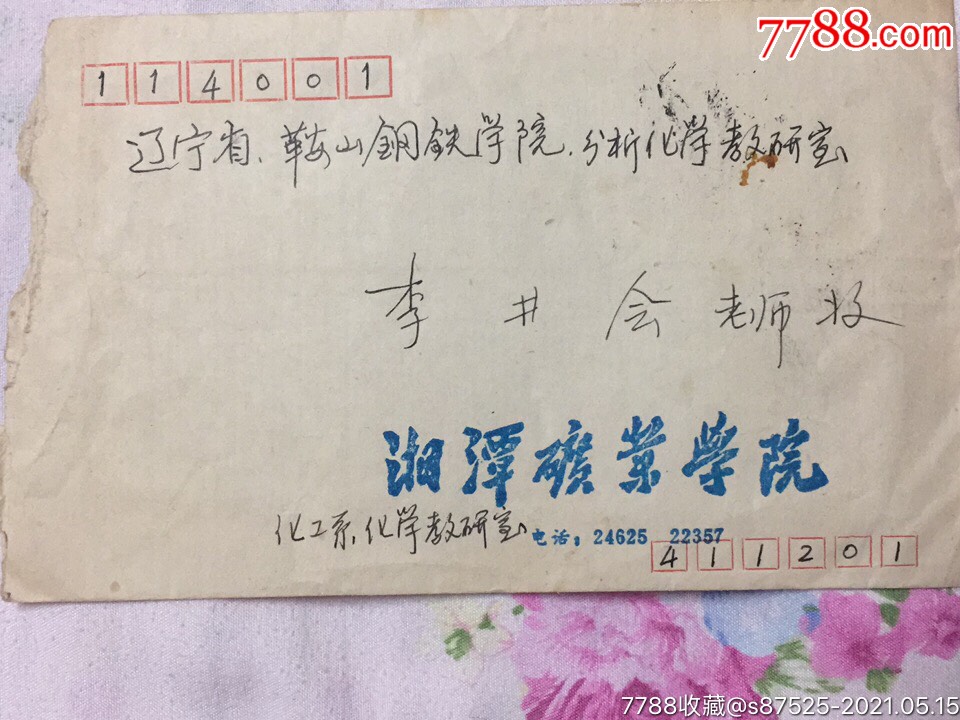 7788.com
114001
辽宁省、鞍山钢铁学院、分析化学教研室
李井会老师收
湘潭矿业学院
化工系、化学教研室 电话：24625 22357
411201
7788收藏@s87525-2021.05.15